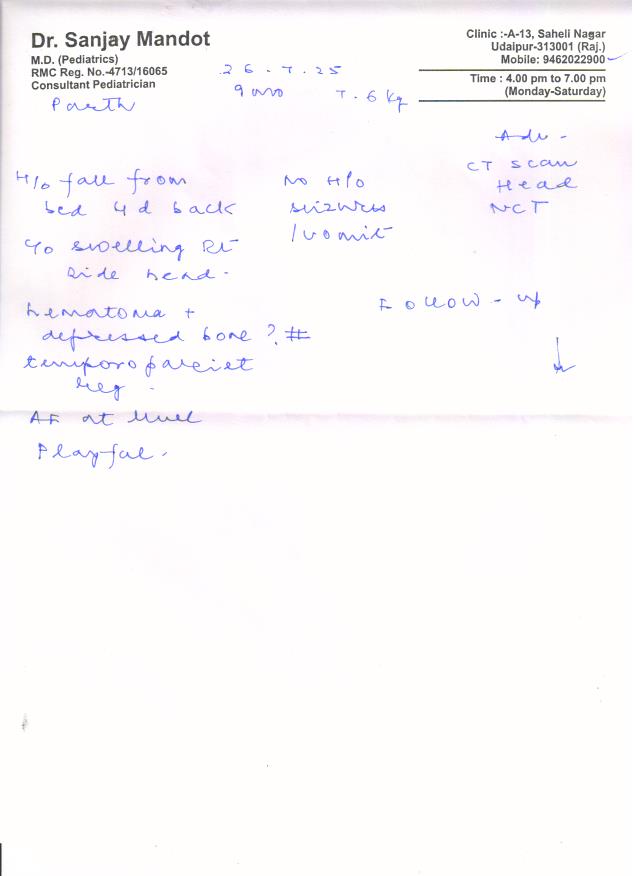 Dr. Sanjay Mandot
M.D. (Pediatrics)
RMC Reg. No.-4713/16065
Consultant Pediatrician
Clinic :-A-13, Saheli Nagar
Udaipur-313001 (Raj.)
Mobile: 9462022900
Time : 4.00 pm to 7.00 pm
(Monday-Saturday)
26.7.25
Parth
9 mo 7.6 kg
H/o fall from
bed 4d back
c/o swelling Rt
side head.
hematoma +
depressed bone ? #
temporo pariet
reg.
AF at level
Playful.
No H/o
seizures
/vomit
Adv -
CT scan
Head
NCT
Follow-up